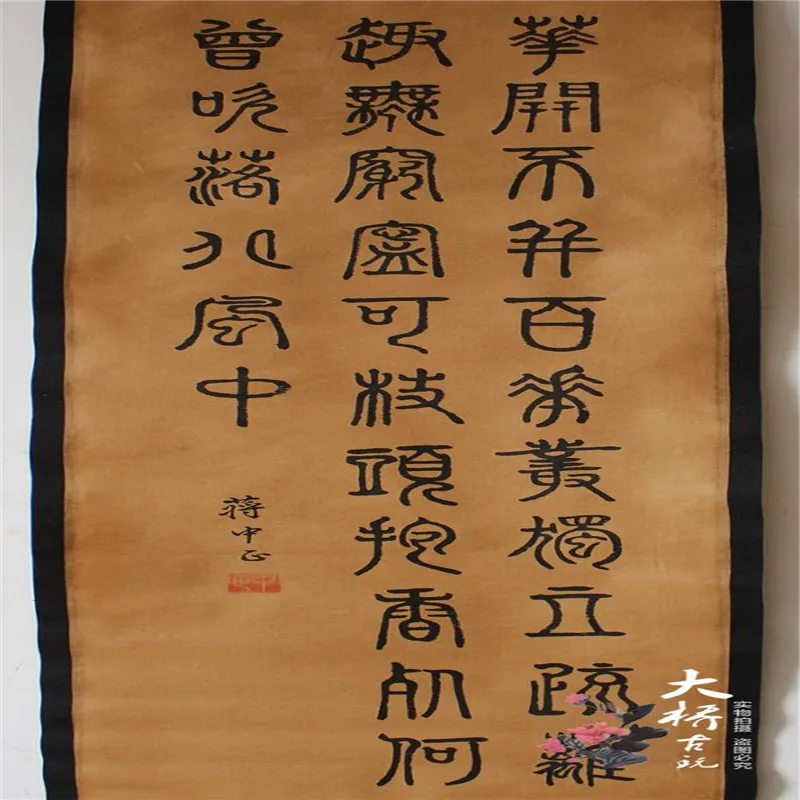 華開不并百花叢獨立疏籬
趣無窮寧可枝頭抱香死何
曾吹落北風中
蔣中正
大橋古玩
实物拍摄 盗图必究